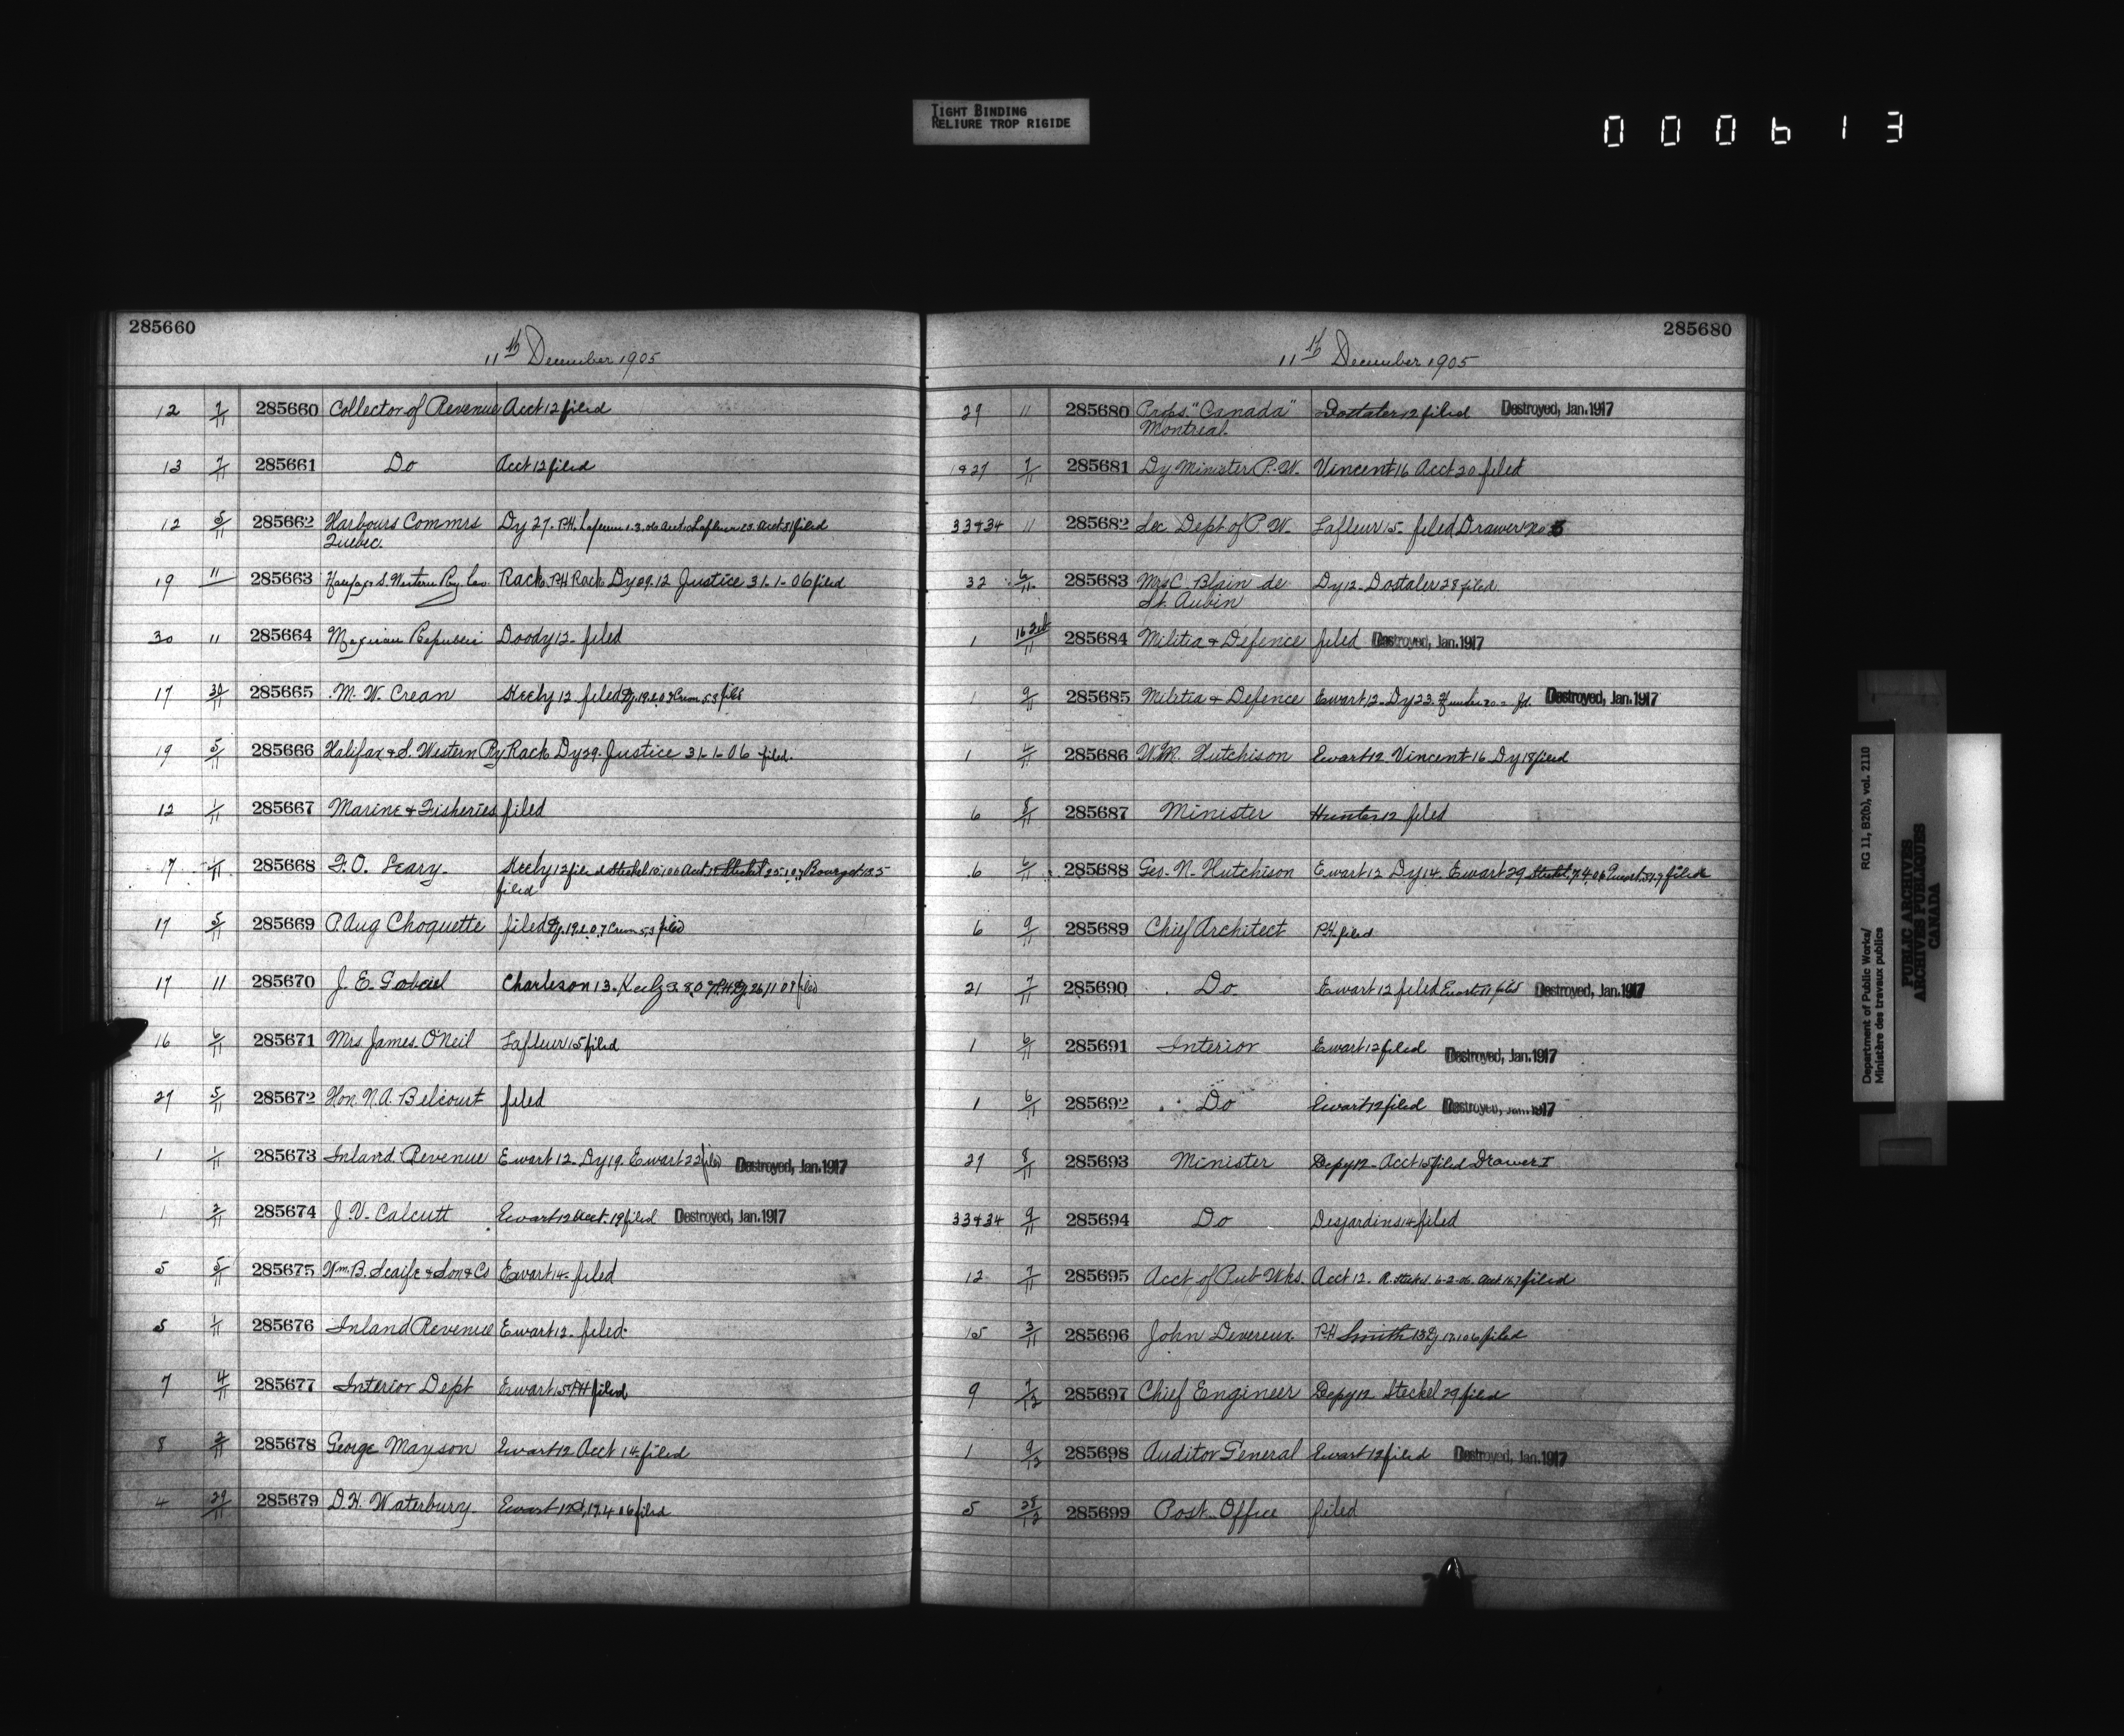 TIGHT BINDING
RELIURE TROP RIGIDE
000613
285660
11th December 1905
12 7/11 285660 Collector of Revenue Acct 12 filed
13 7/11 285661 Do Acct 12 filed
12 5/11 285662 Harbours Commrs Dy 27. P.H. Lafleur 1.3.06 Acct Lafleur 23. Acct 31 filed
Quebec.
19 11 285663 Halifax & S. Western Ry Co. Rack. P.H. Rack Dy 29.12 Justice 31-1-06 filed
30 " 285664 Mexican Republic Doody 12- filed
17 30/11 285665 M. W. Crean Keely 12 filed Dy. 19.2.07 Crean 5.3 filed
19 5/11 285666 Halifax & S. Western Ry Rack Dy 29. Justice 31-1-06 filed.
12 1/11 285667 Marine & Fisheries filed
17 285668 F. O. Leary. Keely 12 filed Steckel Acct Steckel Bourget 13.5
filed
17 5/11 285669 P. Aug Choquette filed Dy. 19.2.07 Crean 5.3 filed
17 11 285670 J. E. Charleson 13. Keely P.H. Dy 26/11 09 filed
16 6/11 285671 Mrs James O'Neil Lafleur 15 filed
27 5/11 285672 Hon. N. A. Belcourt filed
1 1/11 285673 Inland Revenue Ewart 12. Dy 19. Ewart 22 filed Destroyed, Jan. 1917
1 2/11 285674 J. V. Calcutt Ewart 12 Acct. 19 filed Destroyed, Jan. 1917
5 5/11 285675 Wm. B. Scaife & Son & Co Ewart 14- filed
5 1/11 285676 Inland Revenue Ewart 12- filed.
7 4/11 285677 Interior Dept Ewart 15 P.H filed
8 2/11 285678 George Mayson Ewart 12 Acct 14 filed
4 29/11 285679 D. H. Waterbury. Ewart 17.4 06 filed
285680
11th December 1905
29 11 285680 Props. "Canada" Dostaler 12 filed Destroyed, Jan. 1917
Montreal.
1827 7/11 285681 Dy Minister P. W. Vincent 16 Acct 20 filed
33 & 34 11 285682 Sec. Dept of P. W. Lafleur 15- filed Drawer No
32 6/11 285683 Mrs C. Blain de Dy 12- Dostaler 28 filed.
St. Aubin
1 285684 Militia & Defence filed Destroyed, Jan. 1917
1 9/11 285685 Militia & Defence Ewart 12- Dy 23. Fd. Destroyed, Jan. 1917
1 4/11 285686 W. M. Hutchison Ewart 12. Vincent 16 Dy 18 filed
6 8/11 285687 Minister Hunter 12 filed
6 6/11 285688 Geo. N. Hutchison Ewart 12 Dy 14. Ewart 29 Steckel 7.4.06 Ewart filed
6 9/11 285689 Chief Architect P.H. filed
21 7/11 285690 Do Ewart 12 filed Ewart filed Destroyed, Jan. 1917
1 6/11 285691 Interior Ewart 12 filed Destroyed, Jan. 1917
1 6/11 285692 Do Ewart 12 filed Destroyed, Jan. 1917
27 8/11 285693 Minister Depy 12- Acct 15 filed Drawer I
33 & 34 9/11 285694 Do Desjardins 14 filed
12 7/11 285695 Acct of Pub Wks. Acct 12. R. Steckel. 6-2-06. Acct 16.7 filed
15 3/11 285696 John Devereux. P.H Smith 13 Dy 17.1 06 filed
9 7/12 285697 Chief Engineer Depy 12 Steckel 29 filed
1 9/12 285698 Auditor General Ewart 12 filed Destroyed, Jan. 1917
5 285699 Post Office filed
Department of Public Works/ RG 11, B2(b), vol. 2110
Ministère des travaux publics
PUBLIC ARCHIVES
ARCHIVES PUBLIQUES
CANADA